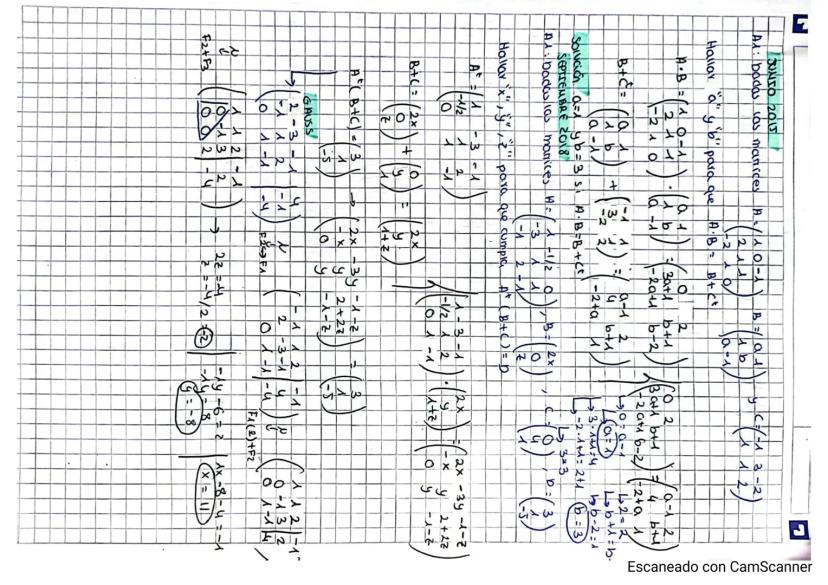 JUNIO 2017
A1: Dadas las matrices A=(1 0 -1 / 2 1 1 / -2 1 0) B=(a 1 / 1 b / a -1) y C=(-1 3 -2 / 1 1 2)
Hallar "a" y "b" para que A·B = B+Cᵗ
A·B = (1 0 -1 / 2 1 1 / -2 1 0) · (a 1 / 1 b / a -1) = (0 2 / 3a+1 b+1 / -2a+1 b-2)
B+Cᵗ = (a 1 / 1 b / a -1) + (-1 1 / 3 1 / -2 2) = (a-1 2 / 4 b+1 / -2+a 1)
(0 2 / 3a+1 b+1 / -2a+1 b-2) = (a-1 2 / 4 b+1 / -2+a 1)
0 = a-1
a=1
3·1+1=4
2=2
b-2=1
b=3
3=3
Solución a=1 y b=3 si A·B=B+Cᵗ
SEPTIEMBRE 2018
A1: Dadas las matrices A=(1 -1/2 0 / -3 1 1 / -1 2 -1), B=(2x / 0 / z), C=(0 / y / 1), D=(3 / 1 / -5)
Hallar "x", "y", "z" para que cumpla Aᵗ(B+C)=D
Aᵗ=(1 -3 -1 / -1/2 1 2 / 0 1 -1)
B+C=(2x / 0 / z) + (0 / y / 1) = (2x / y / 1+z)
(1 -3 -1 / -1/2 1 2 / 0 1 -1) · (2x / y / 1+z) = (2x -3y -1-z / -x y 2+2z / 0 y -1-z)
Aᵗ(B+C)=(3 / 1 / -5) → (2x -3y -1-z / -x y 2+2z / 0 y -1-z) = (3 / 1 / -5)
GAUSS
(2 -3 -1 | 4 / -1 1 2 | -1 / 0 1 -1 | -4) (-1 1 2 | -1 / 2 -3 -1 | 4 / 0 1 -1 | -4) F1(2)+F2 (1 1 2 | -1 / 0 -1 3 | 2 / 0 1 -1 | 4)
F2+F3 (1 1 2 | -1 / 0 -1 3 | 2 / 0 0 2 | -4) → 2z=-4
z=-4/2=-2
-1y-6=2
-1y 8
y=-8
1x-8-4=-1
x=11
Escaneado con CamScanner